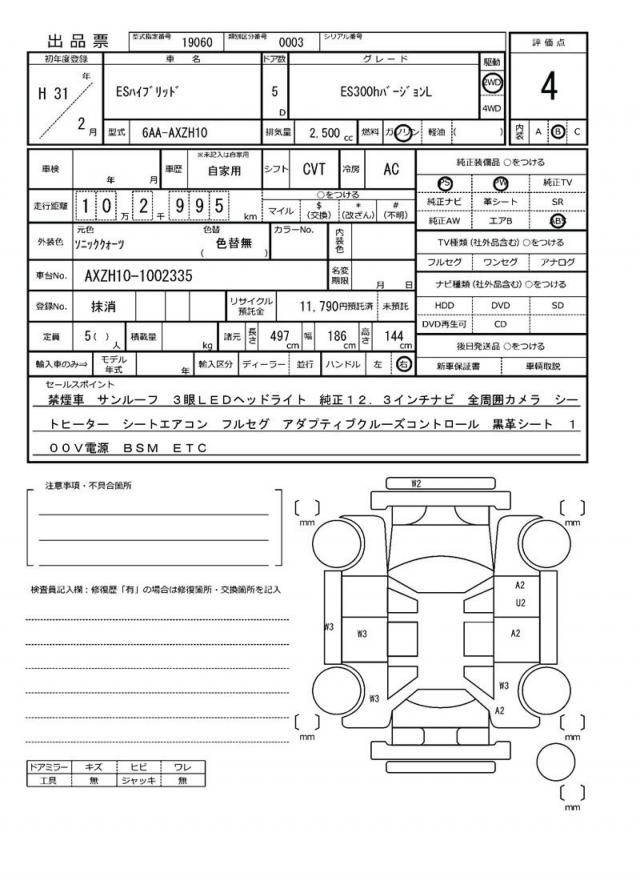 出品票 型式指定番号 19060 類別区分番号 0003 シリアル番号
評価点
4
内装 A B C
初年度登録 車名 ドア数 グレード 駆動
H 31 年 2 月
ESハイブリッド 5 D ES300hバージョンL 2WD 4WD
型式 6AA-AXZH10 排気量 2,500 cc 燃料 ガソリン 軽油 ( )
車検 年 月 車歴 ※未記入は自家用 自家用 シフト CVT 冷房 AC
走行距離 1 0 万 2 千 9 9 5 km
○をつける
マイル $ (交換) * (改ざん) # (不明)
外装色 元色 ソニッククォーツ 色替 ( 色替無 ) カラーNo. 内装色
車台No. AXZH10-1002335 名変期限 月 日
登録No. 抹消 リサイクル預託金 11,790円預託済 未預託
定員 5( ) 人 積載量 kg 諸元 長さ 497 cm 幅 186 cm 高さ 144 cm
輸入車のみ⇒ モデル年式 年 輸入区分 ディーラー 並行 ハンドル 左 右
純正装備品 ○をつける
PS PW 純正TV
純正ナビ 革シート SR
純正AW エアB ABS
TV種類 (社外品含む) ○をつける
フルセグ ワンセグ アナログ
ナビ種類 (社外品含む) ○をつける
HDD DVD SD
DVD再生可 CD
後日発送品 ○をつける
新車保証書 車輌取説
セールスポイント
禁煙車 サンルーフ 3眼LEDヘッドライト 純正12.3インチナビ 全周囲カメラ シー
トヒーター シートエアコン フルセグ アダプティブクルーズコントロール 黒革シート 1
00V電源 BSM ETC
注意事項・不具合箇所
検査員記入欄：修復歴「有」の場合は修復箇所・交換箇所を記入
ドアミラー キズ ヒビ ワレ
工具 無 ジャッキ 無
W2
[ ] mm
[ ] mm
A2
U2
W3
W3
A2
W3
W3
A2
[ ] mm
[ ] mm
[ ] mm